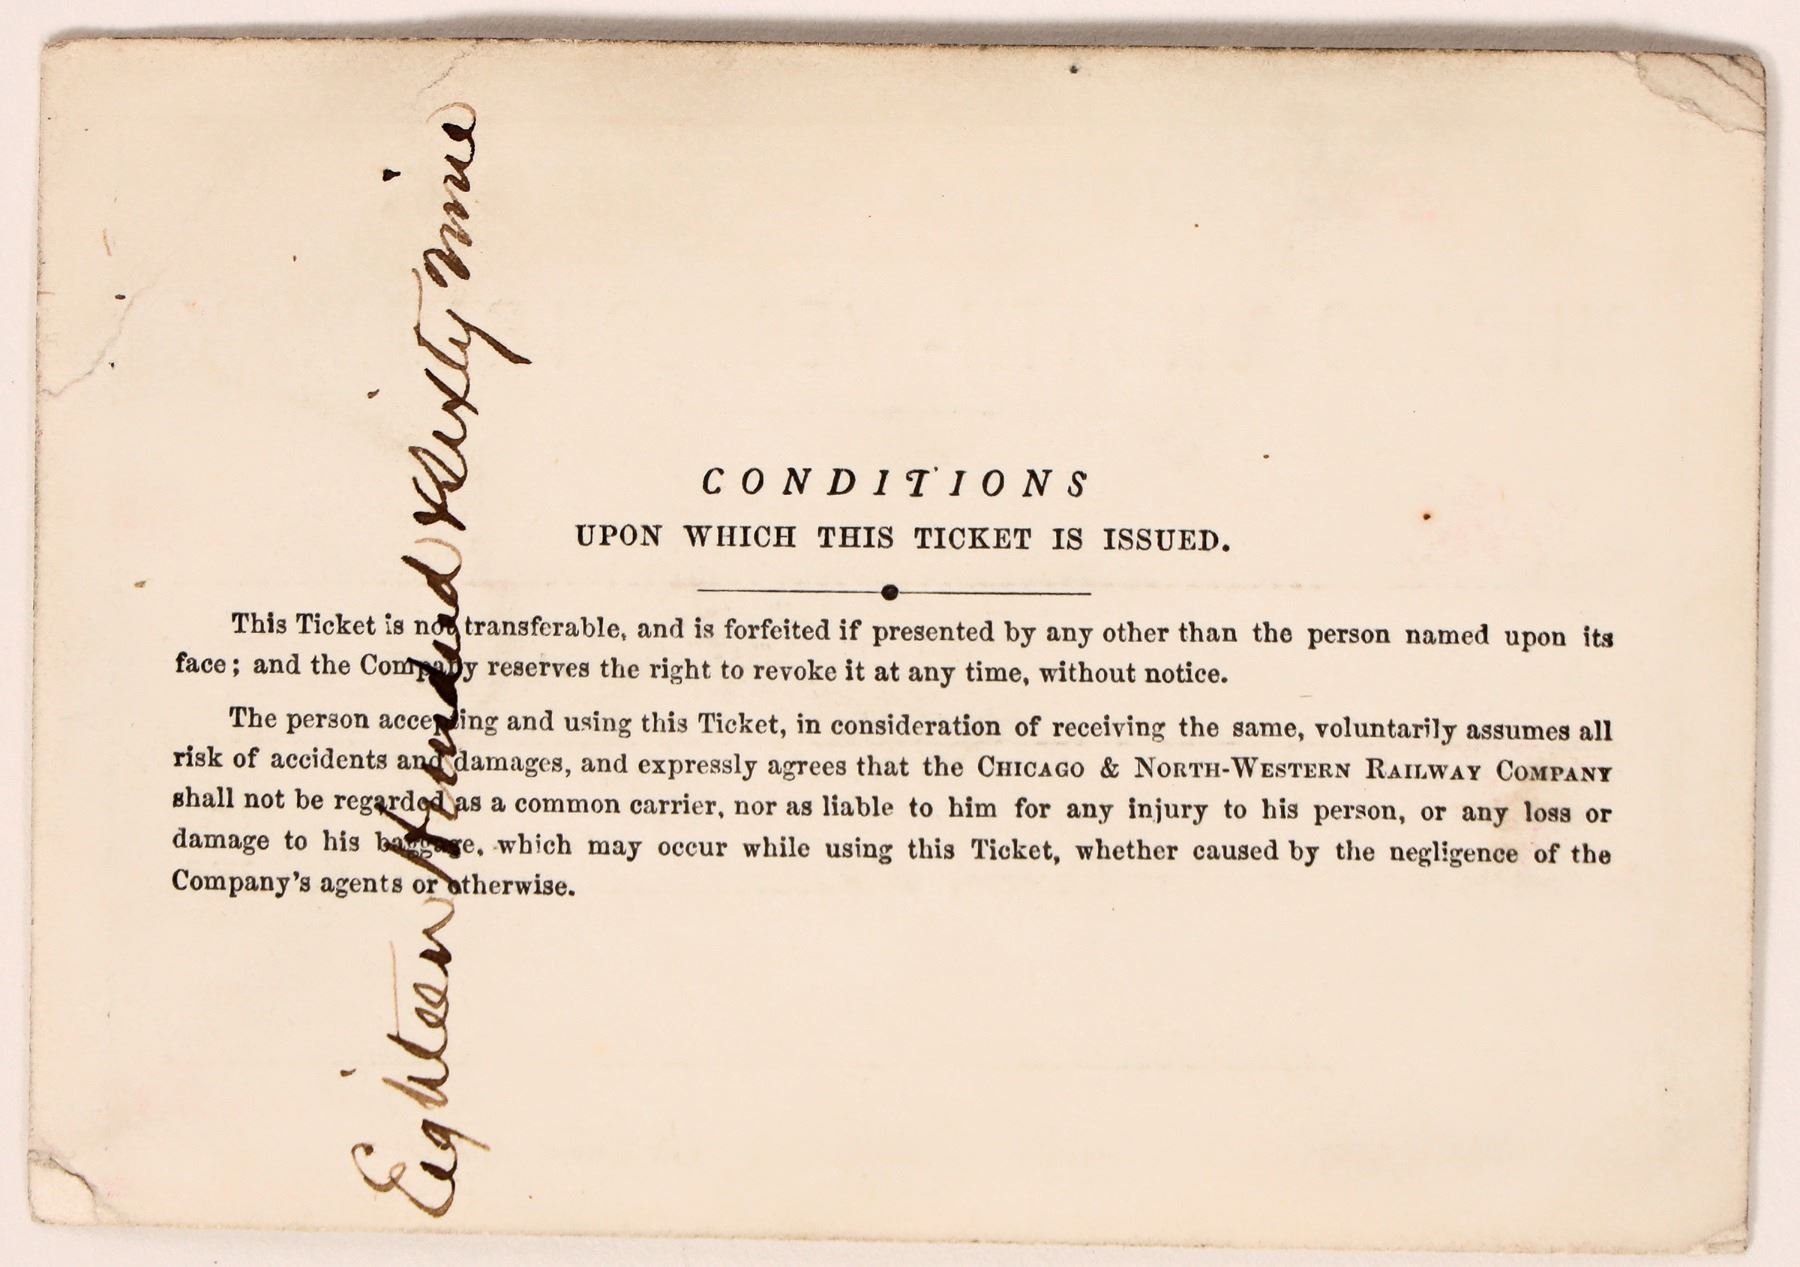 CONDITIONS
UPON WHICH THIS TICKET IS ISSUED.
This Ticket is not transferable, and is forfeited if presented by any other than the person named upon its
face; and the Company reserves the right to revoke it at any time, without notice.
The person accepting and using this Ticket, in consideration of receiving the same, voluntarily assumes all
risk of accidents and damages, and expressly agrees that the CHICAGO & NORTH-WESTERN RAILWAY COMPANY
shall not be regarded as a common carrier, nor as liable to him for any injury to his person, or any loss or
damage to his baggage, which may occur while using this Ticket, whether caused by the negligence of the
Company's agents or otherwise.
Eighteen Hundred & Sixty nine